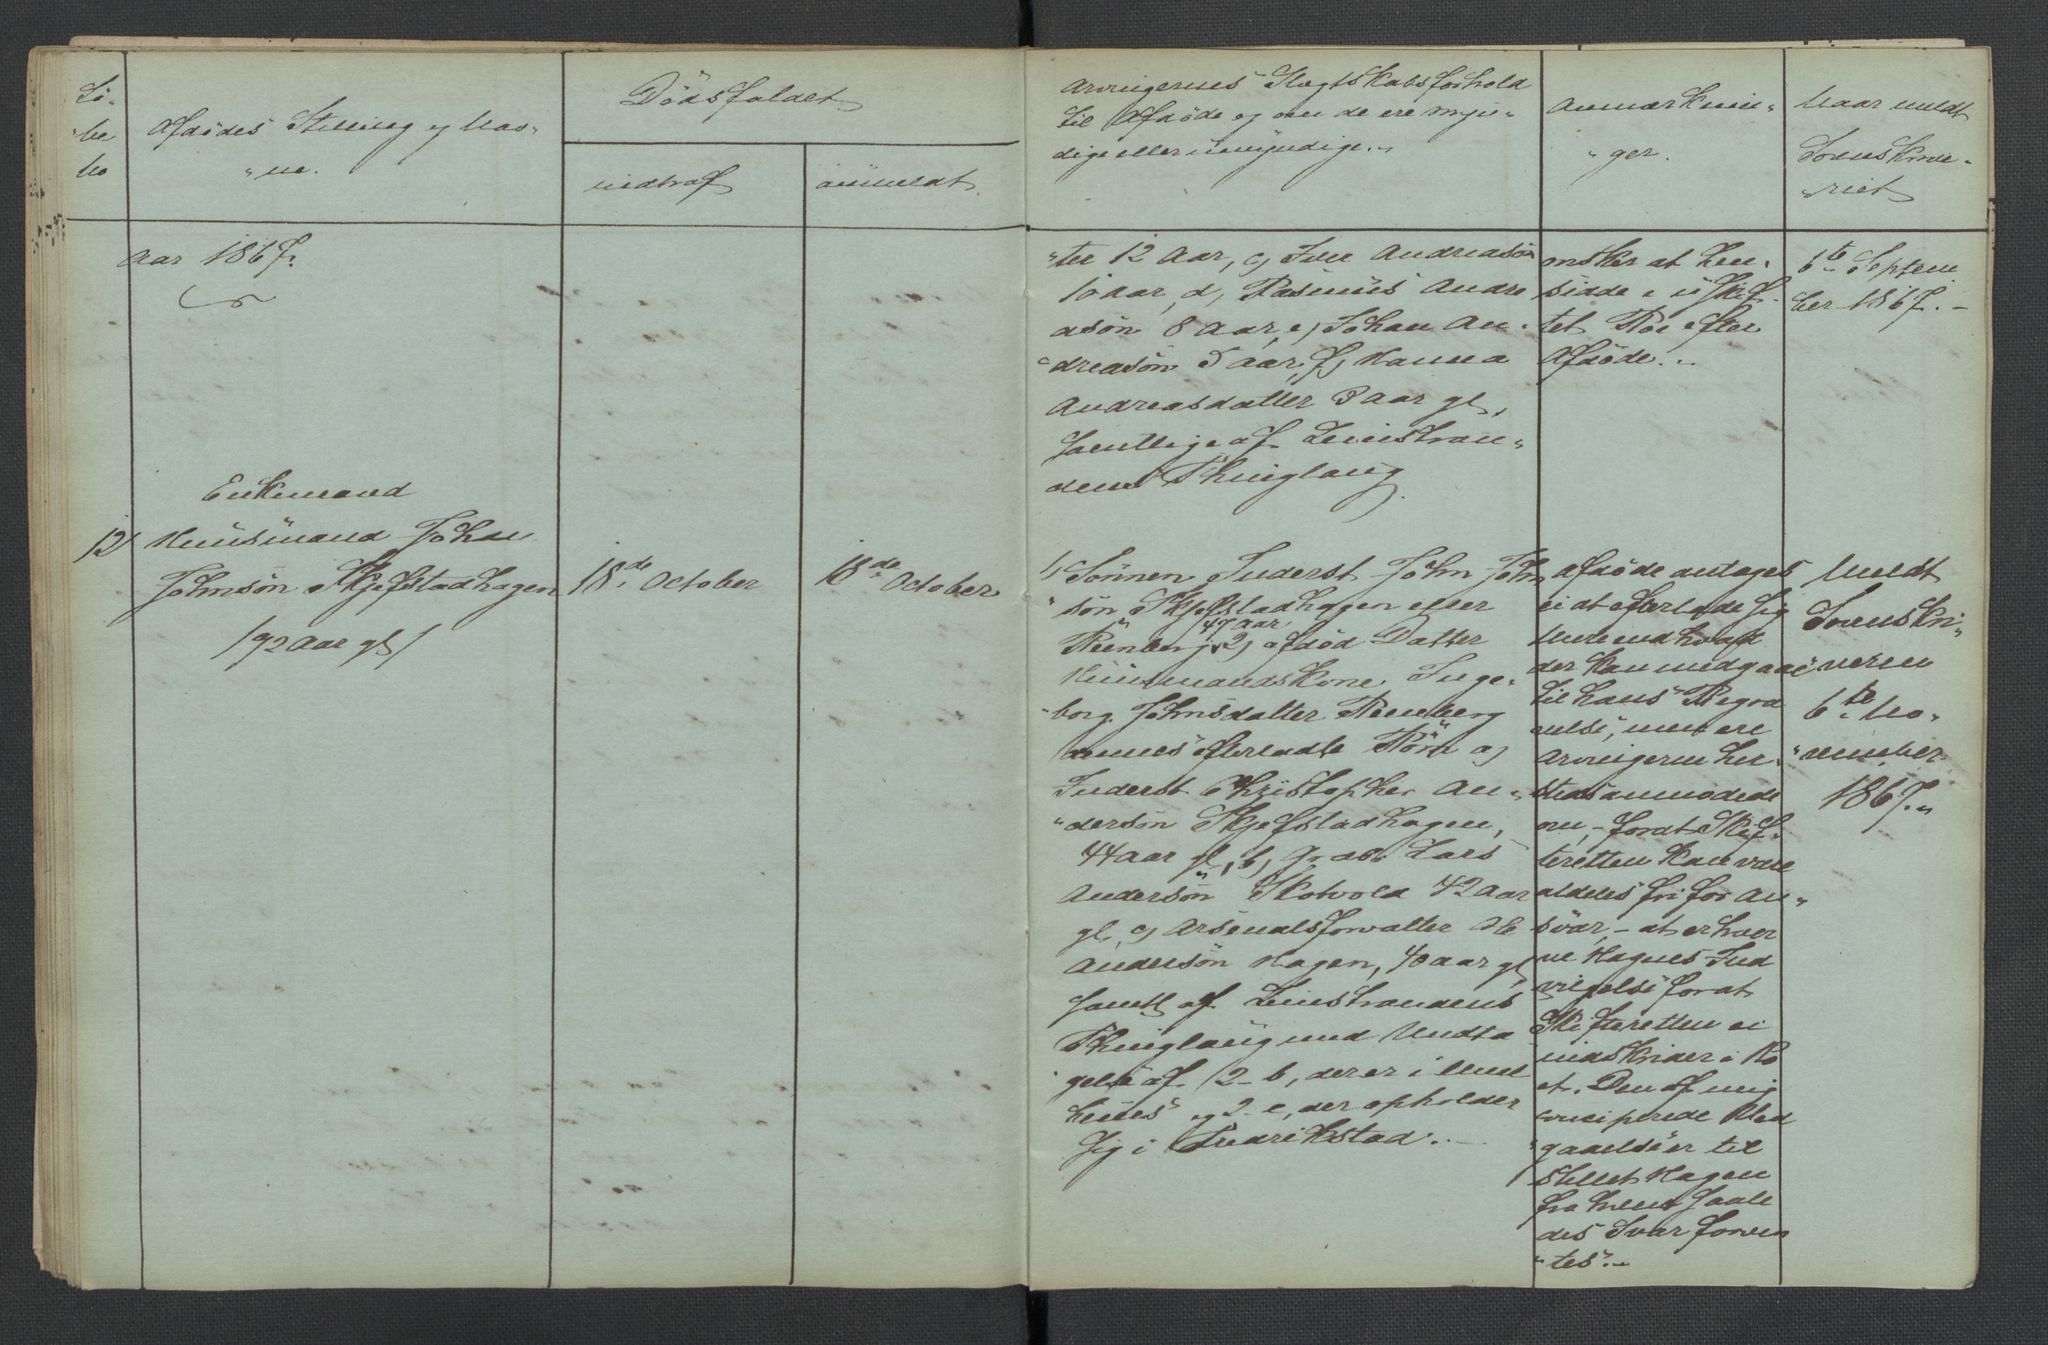 Lö-
"be
No
Afdödes Stilling og Nav-
"ne.
Dödsfaldet
indtraf
anmeldt.
Arvingernes Slegtskabsforhold
til Afdöde og om de ere myn-
dige eller umyndige.
Anmærknin-
"ger.
Naar meldt
Sorenskrive-
"riet
Aar 1867.
"ter 12 Aar, c, Iver Andreasön
10 aar, d, Rasmus Andre
asön 8 Aar, e, Johan An-
"dreasön 5 aar, f, Hanna
Andreasdatter 3 aar gl,
samtlige af Leinstran-
dens Thinglaug.
ønsker at hen-
sidde i uskif-
tet Boe efter
Afdöde.
6te Septem
ber 1867.
Enkemand
12, Huusmand Johan
Johnsön Skjefstadhagen
/92 aar gl/
18de October
18de October
1, Sönnen Inderst John John
"sön Skjefstadhagen eller
47 aar
Reenberg, 2, afdöd Datter
Huusmandskone Inge-
"borg Johnsdatter Reenberg
dennes efterladte Börn a,
Inderst Christopher An-
"dersön Skjefstadhagen,
44 aar gl, b, Grdb. Lars
Andersön Skotvold 42 Aar
gl, c, Arsenalsforvalter Ole
Andersön Hagen, 40 aar gl,
samtl. af Leinstrandens
Thinglaug med Undta
gelse af 2-b, der er i Mel
huus og 2-c, der opholder
sig i Fredrikstad.
Afdöde antages
ei at efterlade sig
mere end hvad
der kan medgaae
til hans Begra
velse, men ere
Arvingerne hen-
"stedsanmodede
om, forat Skif-
teretten kan være
aldeles fri for An-
svar, at erhver
ve Hagens Ind
vilgelse forat
Skifteretten ei
indskrider i Bo
et. Den af mig
conciperede Ved
"gaaelse er til
stillet Hagen
fra hvem saale
des Svar forven
"tes.
Meldt
Sorenskri-
"veren
6te No-
"vember
1867.